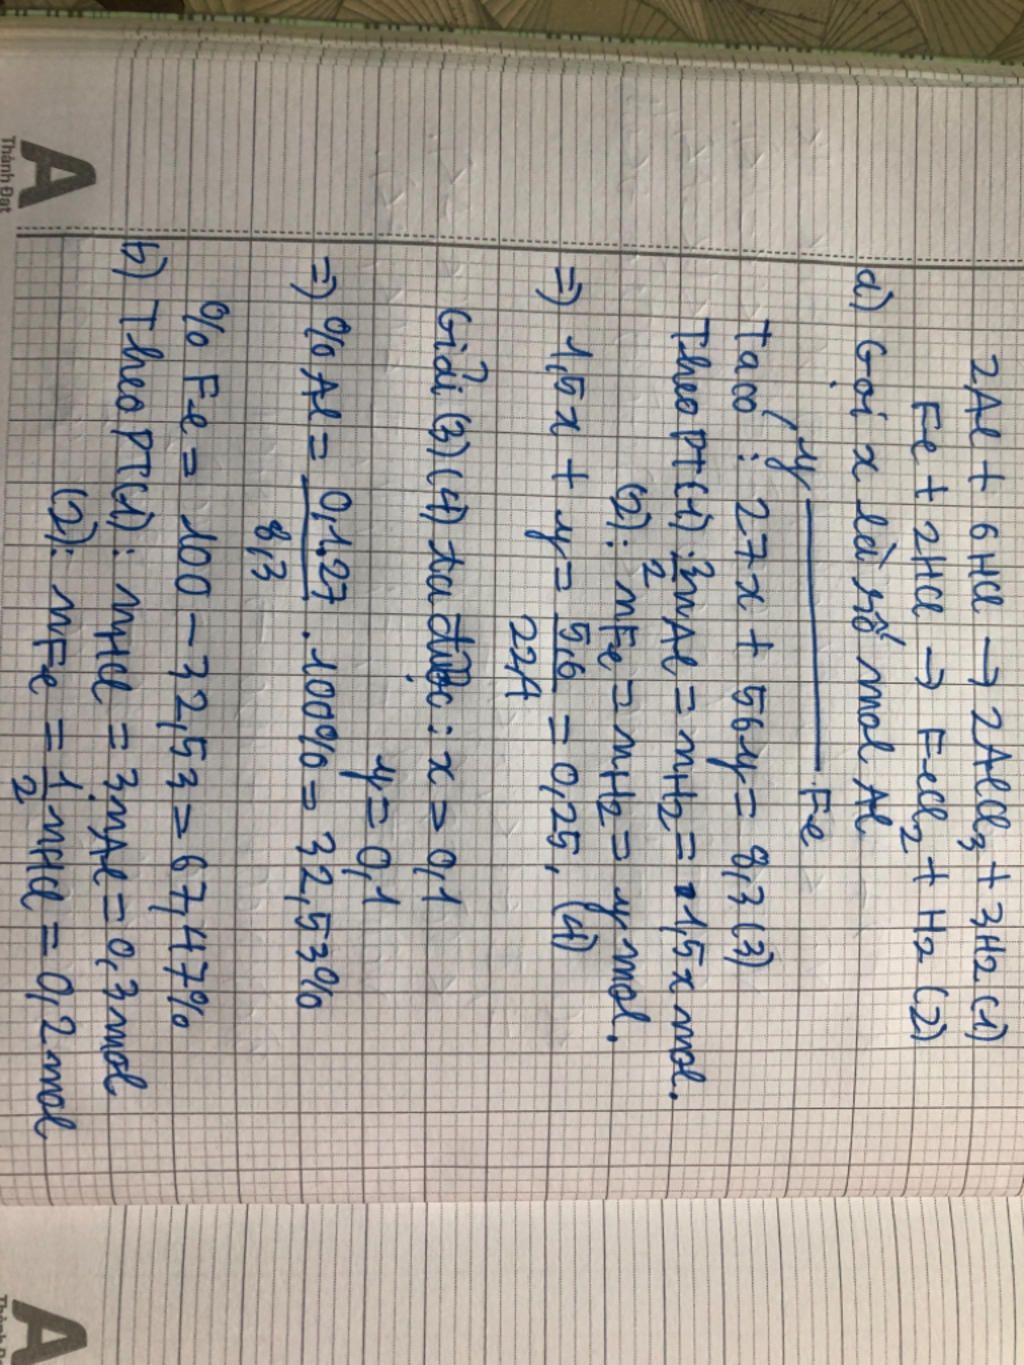 2Al + 6HCl → 2AlCl₃ + 3H₂ (1)
Fe + 2HCl → FeCl₂ + H₂ (2)
a) Gọi x là số mol Al
y ——— Fe
Ta có : 27x + 56y = 8,3 (3)
Theo Pt (1) : 3/2 nAl = nH₂ = 1,5x mol.
(2) : nFe = nH₂ = y mol.
=) 1,5x + y = 5,6/22,4 = 0,25, (4)
Giải (3) (4) ta được : x = 0,1
y = 0,1
=) % Al = 0,1.27/8,3 . 100% = 32,53%
% Fe = 100 - 32,53 = 67,47%
b) Theo PT(1) : nHCl = 3nAl = 0,3 mol
(2) : nFe = 1/2 nHCl = 0,2 mol
A
Thành Đạt
A
Thành Đạt